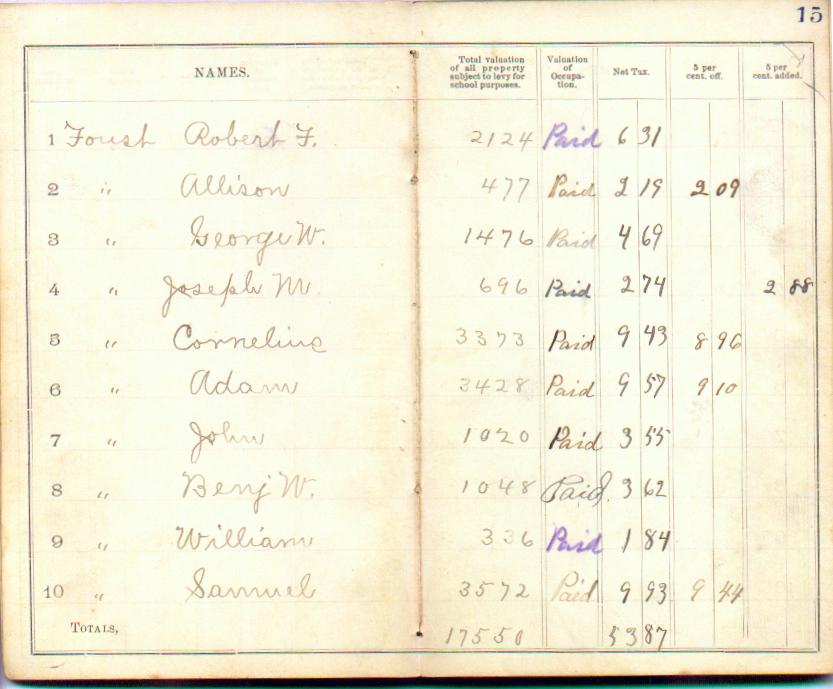 15
NAMES. Total valuation of all property subject to levy for school purposes. Valuation of Occupa-tion. Net Tax. 5 per cent. off. 5 per cent. added.
1 Foust Robert F. 2124 Paid 6 31
2 " Allison 477 Paid 2 19 2 09
3 " George W. 1476 Paid 4 69
4 " Joseph M. 696 Paid 2 74 2 88
5 " Cornelius 3373 Paid 9 43 8 96
6 " Adam 3428 Paid 9 57 9 10
7 " John 1020 Paid 3 55
8 " Benj W. 1048 Paid. 3 62
9 " William 336 Paid 1 84
10 " Samuel 3572 Paid 9 93 9 44
TOTALS, 17550 53 87